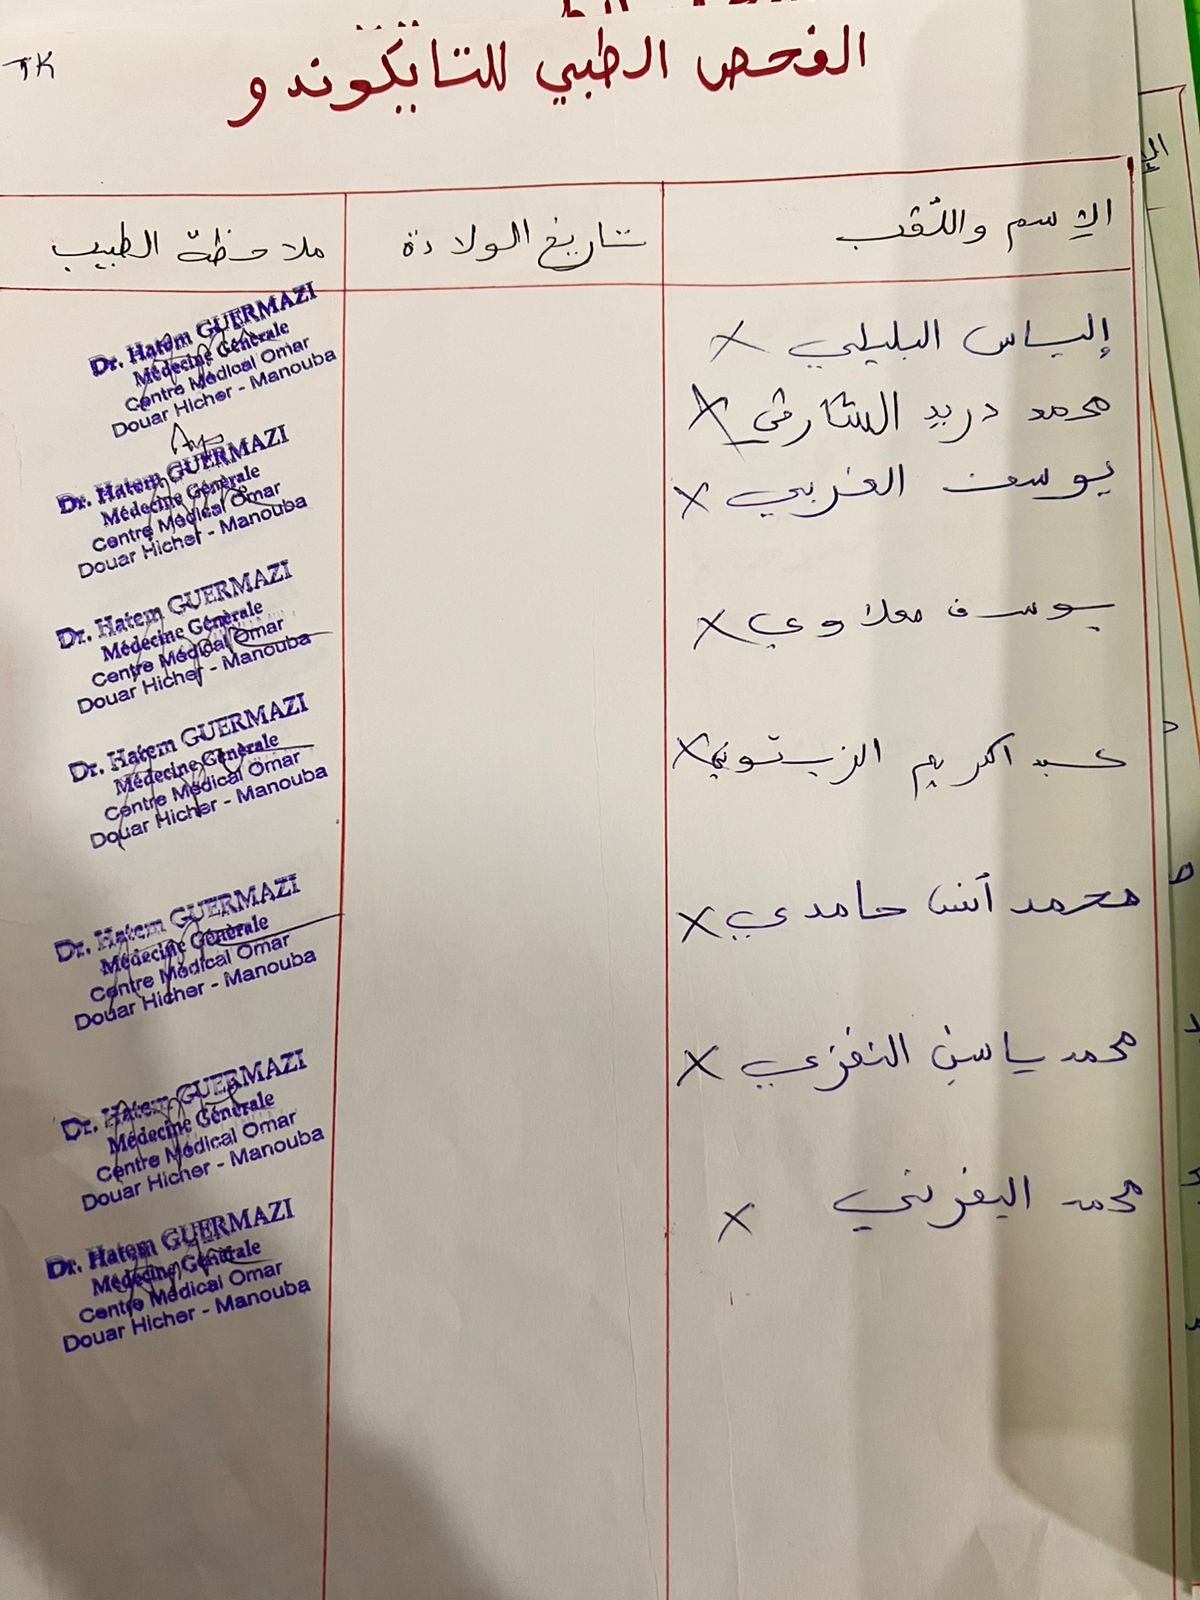 TK
الفحص الطبي للتايكوندو
الإسم واللقب
تاريخ الولادة
ملاحظة الطبيب
إلياس البليلي X
Dr. Hatem GUERMAZI
Médecine Générale
Centre Médical Omar
Douar Hicher - Manouba
محمد دريد الشارني X
Dr. Hatem GUERMAZI
Médecine Générale
Centre Médical Omar
Douar Hicher - Manouba
يوسف الغربي X
Dr. Hatem GUERMAZI
Médecine Générale
Centre Médical Omar
Douar Hicher - Manouba
يوسف معلاوي X
Dr. Hatem GUERMAZI
Médecine Générale
Centre Médical Omar
Douar Hicher - Manouba
عبد اكريم الزيتوني X
Dr. Hatem GUERMAZI
Médecine Générale
Centre Médical Omar
Douar Hicher - Manouba
محمد أنس حامدي X
Dr. Hatem GUERMAZI
Médecine Générale
Centre Médical Omar
Douar Hicher - Manouba
محمد ياسين النفزي X
Dr. Hatem GUERMAZI
Médecine Générale
Centre Médical Omar
Douar Hicher - Manouba
محمد اليفرني X